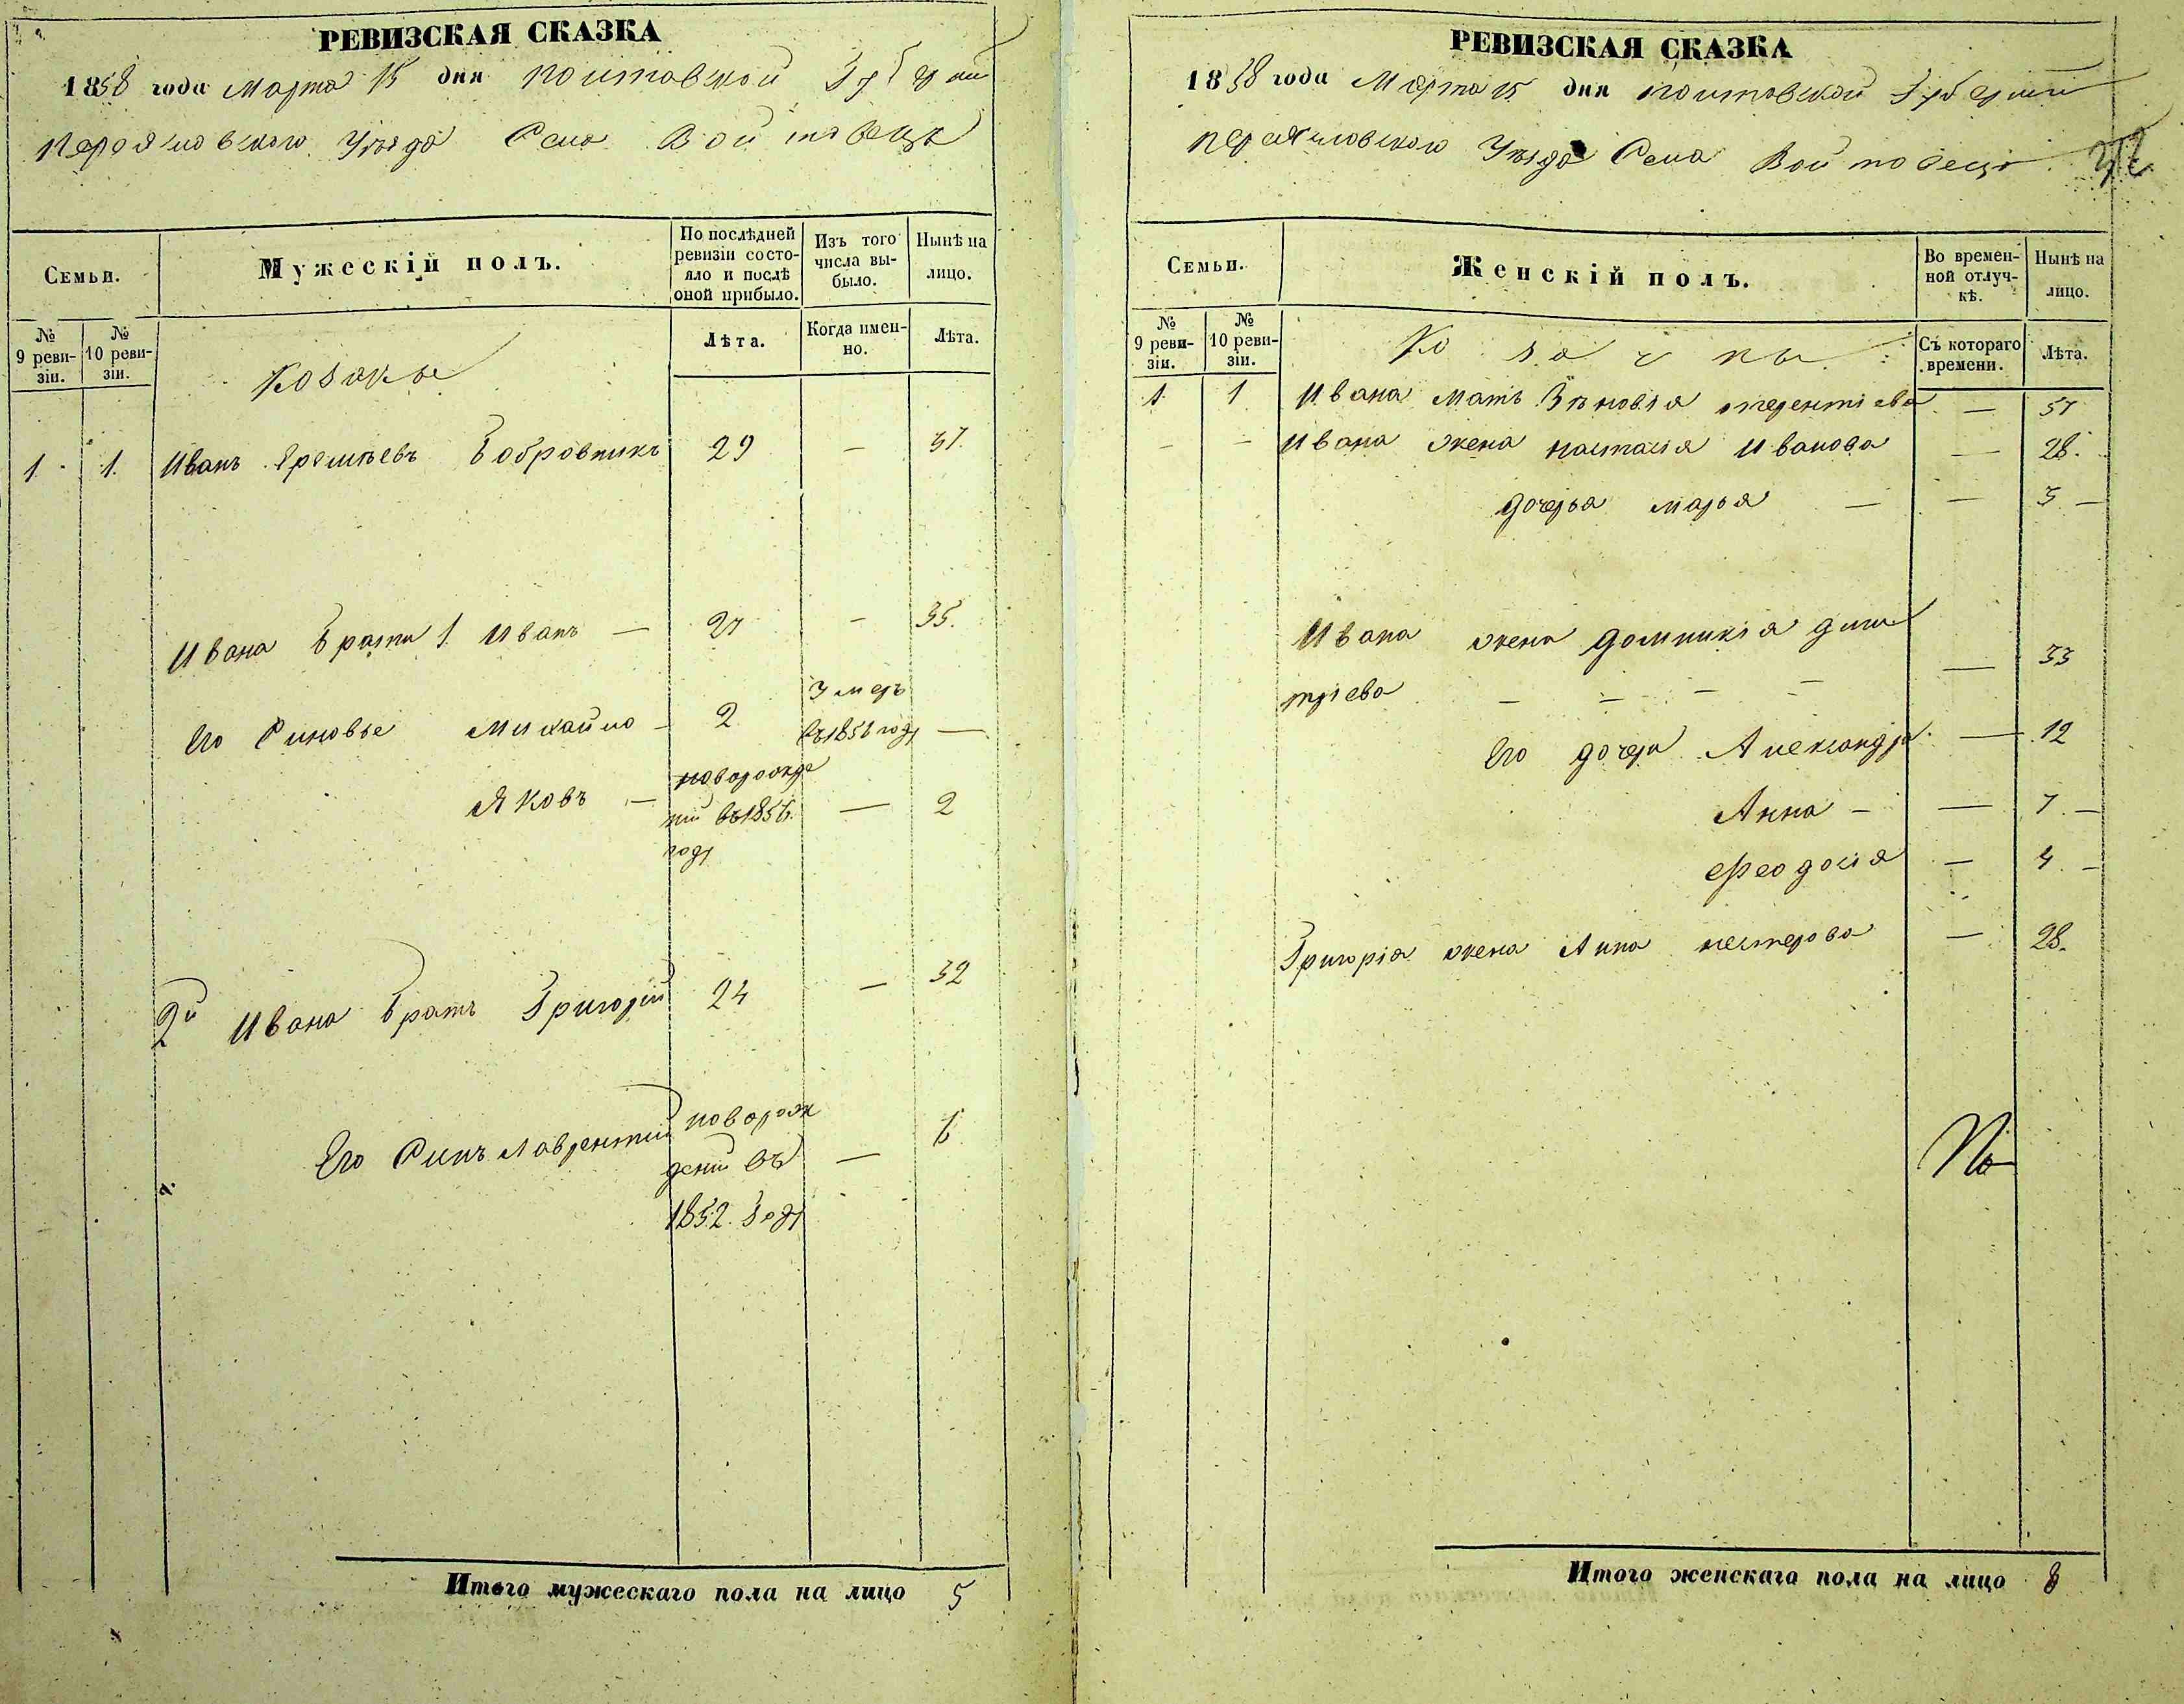 РЕВИЗСКАЯ СКАЗКА
1858 года Марта 15 дня Полтавской Губернии
Переяловского Уезда Села Войтовець
Семьи.
Мужескій полъ.
По послѣдней ревизіи состояло и послѣ оной прибыло.
Изъ того числа выбыло.
Нынѣ на лицо.
№ 9 ревизіи.
№ 10 ревизіи.
Козаки
Лѣта.
Когда именно.
Лѣта.
1. 1. Иванъ Бобровникъ 29 — 37.
Ивана Брати 1 Иванъ — 27 — 35.
Его Синовье Михайло — 2 Умеръ
въ 1856 году —
Яковъ — новорожде
ний въ 1856. — 2
году
2й Ивана Братъ Григорій 24 — 32
Его Синъ Лаврентий новорож
дений въ — 6
1852. Году
Итого мужескаго пола на лицо 5
РЕВИЗСКАЯ СКАЗКА
1858 года Марта 15 дня Полтавской Губерний
Переяловского Уезда Села Войтовець
Семьи.
Женскій полъ.
Во временной отлучкѣ.
Нынѣ на лицо.
№ 9 ревизіи.
№ 10 ревизіи.
Козачки
Съ котораго времени.
Лѣта.
1. 1 Ивана Мать Зѣновія терентіева — 57
— — Ивана жена настасія Иванова — 28.
дочерья марья — — 5 —
Ивана жена домникія дми
тріева — — — — — 33
Его дочери Александра — 12
Анна — — 7. —
Феодосія — 4. —
Григорія жена Анна нестерова — 28.
Итого женскаго пола на лицо 8